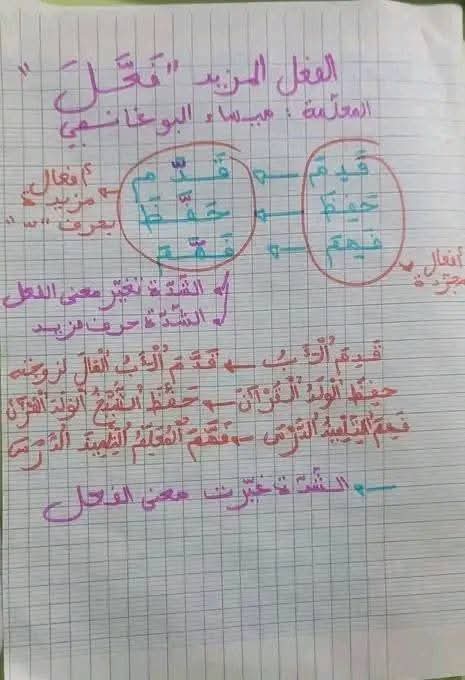 الفعل المزيد "فَعَّلَ"
المعلّمة : ميساء البوغانمي
قَدِمَ ← قَدَّمَ
حَفِظَ ← حَفَّظَ
فَهِمَ ← فَهَّمَ
أفعال مجرّدة
أفعال مزيدة بحرف "ّ"
الشدّة تغيّر معنى الفعل
الشدّة حرف مزيد
قَدِمَ اُلْأَبُ ← قَدَّمَ اُلْأَبُ اُلْمَالَ لزوجته
حفِظَ اُلْوَلَدُ اُلْقُرْآنَ ← حَفَّظَ اُلشَّيْخُ اُلْوَلَدَ اُلْقُرْآنَ
فَهِمَ اُلتِّلْمِيذُ اُلدَّرْسَ ← فَهَّمَ اُلْمُعَلِّمُ اُلتِّلْمِيذَ اُلدَّرْسَ
← الشدّة غيّرت معنى الفعل